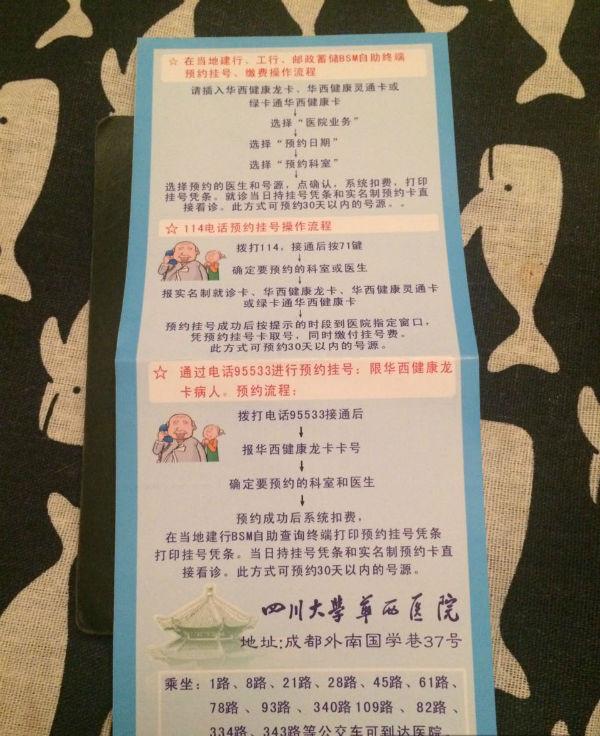 ☆ 在当地建行、工行、邮政蓄储BSM自助终端
预约挂号、缴费操作流程
请插入华西健康龙卡、华西健康灵通卡或
绿卡通华西健康卡
↓
选择“医院业务”
↓
选择“预约日期”
↓
选择“预约科室”
↓
选择预约的医生和号源，点确认，系统扣费，打印
挂号凭条。就诊当日持挂号凭条和实名制预约卡直
接看诊。此方式可预约30天以内的号源。。
☆ 114电话预约挂号操作流程
拨打114，接通后按71键
↓
确定要预约的科室或医生
↓
报实名制就诊卡、华西健康龙卡、华西健康灵通卡
或绿卡通华西健康卡
↓
预约挂号成功后按提示的时段到医院指定窗口，
凭预约挂号卡取号，同时缴付挂号费。
此方式可预约30天以内的号源。
☆ 通过电话95533进行预约挂号：限华西健康龙
卡病人。预约流程：
拨打电话95533接通后
↓
报华西健康龙卡卡号
↓
确定要预约的科室和医生
↓
预约成功后系统扣费，
在当地建行BSM自助查询终端打印预约挂号凭条
打印挂号凭条。当日持挂号凭条和实名制预约卡直
接看诊。此方式可预约30天以内的号源。
四川大學華西医院
地址:成都外南国学巷37号
乘坐：1路、8路、21路、28路、45路、61路、
78路、93路、340路109路、82路、
334路、343路等公交车可到达医院。